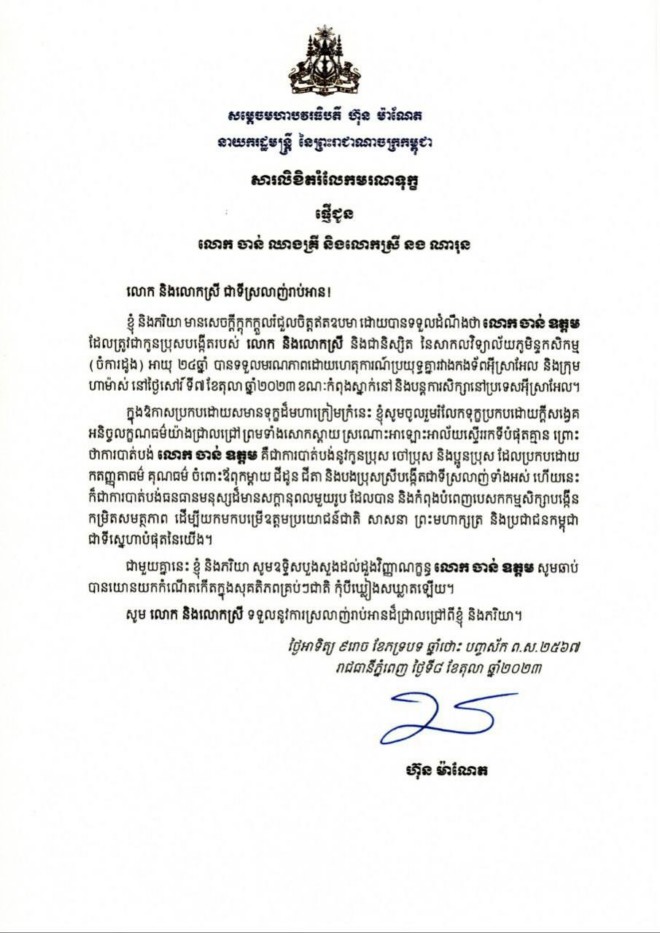 សម្តេចមហាបវរធិបតី ហ៊ុន ម៉ាណែត
នាយករដ្ឋមន្ត្រី នៃព្រះរាជាណាចក្រកម្ពុជា
សារលិខិតរំលែកមរណទុក្ខ
ផ្ញើជូន
លោក ចាន់ ឈាងគ្រី និងលោកស្រី នង ណារុន
លោក និងលោកស្រី ជាទីស្រលាញ់រាប់អាន!
ខ្ញុំ និងភរិយា មានសេចក្តីក្តុកក្តួលរំជួលចិត្តឥតឧបមា ដោយបានទទួលដំណឹងថា លោក ចាន់ ឧត្តម
ដែលត្រូវជាកូនប្រុសបង្កើតរបស់ លោក និងលោកស្រី និងជានិស្សិត នៃសាកលវិទ្យាល័យភូមិន្ទកសិកម្ម
(ចំការដូង) អាយុ ២៤ឆ្នាំ បានទទួលមរណភាពដោយហេតុការណ៍ប្រយុទ្ធគ្នារវាងកងទ័ពអ៊ីស្រាអែល និងក្រុម
ហាម៉ាស់ នៅថ្ងៃសៅរ៍ ទី៧ ខែតុលា ឆ្នាំ២០២៣ ខណៈកំពុងស្នាក់នៅ និងបន្តការសិក្សានៅប្រទេសអ៊ីស្រាអែល។
ក្នុងឱកាសប្រកបដោយសមានទុក្ខដ៏មហាក្រៀមក្រំនេះ ខ្ញុំសូមចូលរួមរំលែកទុក្ខប្រកបដោយក្តីសង្វេគ
អនិច្ចលក្ខណធម៌យ៉ាងជ្រាលជ្រៅ ព្រមទាំងសោកស្តាយ ស្រណោះអាឡោះអាល័យស្ទើររកទីបំផុតគ្មាន ព្រោះ
ថាការបាត់បង់ លោក ចាន់ ឧត្តម គឺជាការបាត់បង់នូវកូនប្រុស ចៅប្រុស និងប្អូនប្រុស ដែលប្រកបដោយ
កតញ្ញុតាធម៌ គុណធម៌ ចំពោះឪពុកម្តាយ ជីដូន ជីតា និងបងប្រុសស្រីបង្កើតជាទីស្រលាញ់ទាំងអស់ ហើយនេះ
ក៏ជាការបាត់បង់ធនធានមនុស្សដ៏មានសក្តានុពលមួយរូប ដែលបាន និងកំពុងបំពេញបេសកកម្មសិក្សាបង្កើន
កម្រិតសមត្ថភាព ដើម្បីយកមកបម្រើឧត្តមប្រយោជន៍ជាតិ សាសនា ព្រះមហាក្សត្រ និងប្រជាជនកម្ពុជា
ជាទីស្នេហាបំផុតនៃយើង។
ជាមួយគ្នានេះ ខ្ញុំ និងភរិយា សូមឧទ្ទិសបួងសួងដល់ដួងវិញ្ញាណក្ខន្ធ លោក ចាន់ ឧត្តម សូមឆាប់
បានយោនយកកំណើតកើតក្នុងសុគតិភពគ្រប់ៗជាតិ កុំបីឃ្លៀងឃ្លាតឡើយ។
សូម លោក និងលោកស្រី ទទួលនូវការស្រលាញ់រាប់អានដ៏ជ្រាលជ្រៅពីខ្ញុំ និងភរិយា។
ថ្ងៃអាទិត្យ ៩រោច ខែភទ្របទ ឆ្នាំថោះ បញ្ចស័ក ព.ស.២៥៦៧
រាជធានីភ្នំពេញ ថ្ងៃទី៨ ខែតុលា ឆ្នាំ២០២៣
ហ៊ុន ម៉ាណែត